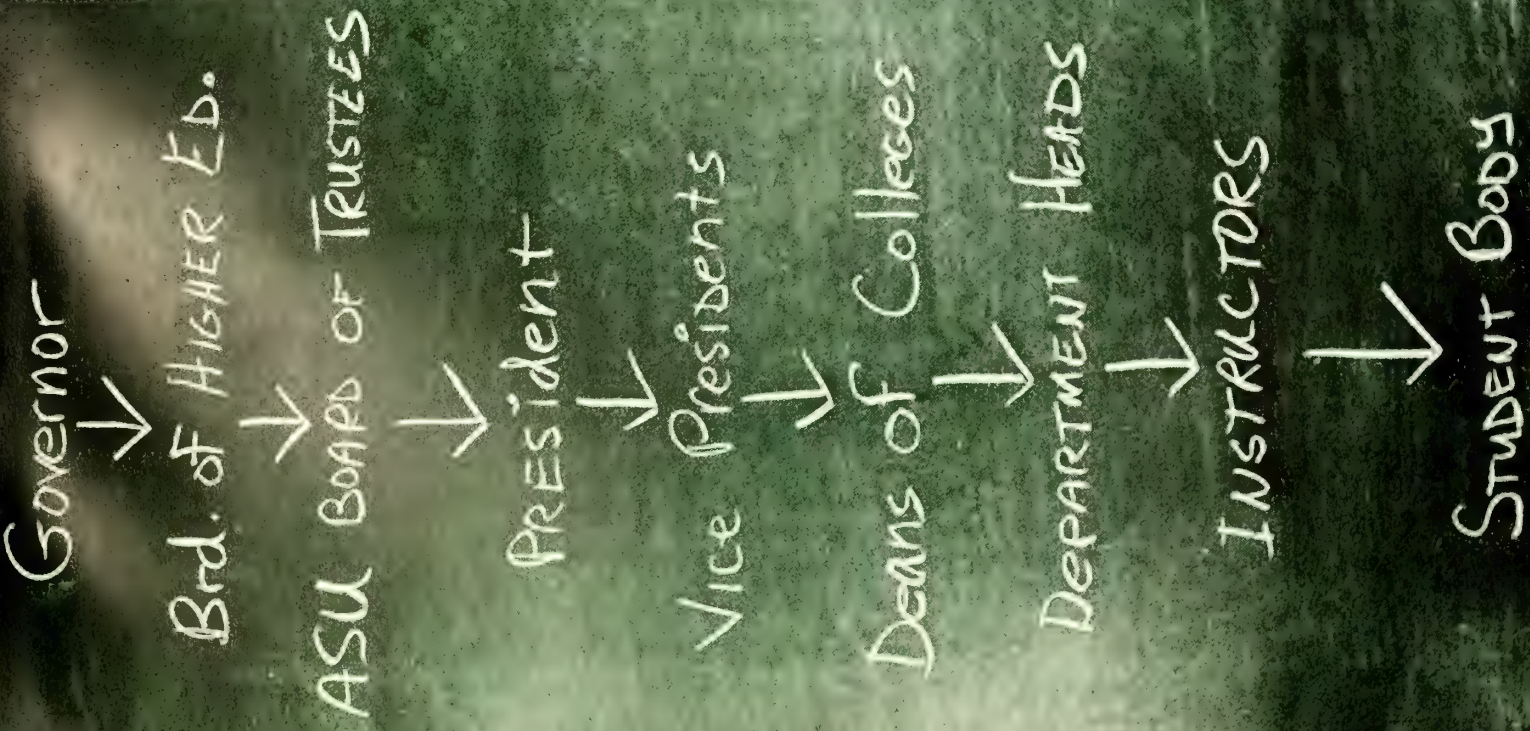 Governor
↓
Brd. of HIGHER ED.
↓
ASU BOARD OF TRUSTEES
↓
PRESident
↓
VICE PresiDents
↓
Deans of Colleges
↓
DEPARTMENT HEADS
↓
INSTRUCTORS
↓
STUDENT BODY